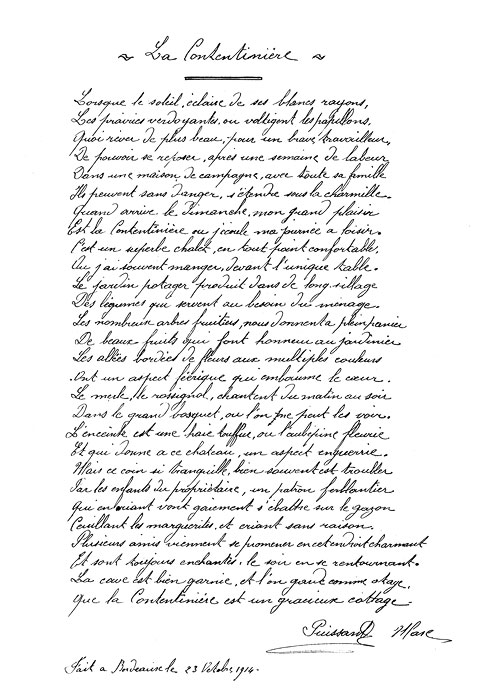 ~ La Contentinière ~
Lorsque le soleil, éclaise de ses blancs rayons,
Les prairies verdoyantes, ou voltigent les papillons.
Quoi rêver de plus beau, pour un brave travailleur,
De pouvoir se reposer, après une semaine de labeur
Dans une maison de campagne, avec toute sa famille
Ils peuvent sans danger, s'étendre sous la charmille.
Quand arrive le Dimanche, mon grand plaisir
Est la Contentinière ou j'écoule ma journée a loisir.
C'est un superbe chalet, en tout point confortable,
Ou j'ai souvent manger, devant l'unique table.
Le jardin potager produit dans de long sillage
Des légumes qui servent au besoin du ménage.
Les nombreux arbres fruitiers, nous donnent a plein panier
De beaux fruits qui font honneur au jardinier
Les allées bordées de fleurs aux multiples couleurs
Ont un aspect féerique qui embaume le cœur.
Le merle, le rossignol, chantent du matin au soir
Dans le grand bosquet, ou l'on ne peut les voir.
L'enceinte est une haie touffue, ou l'aubépine fleurie
Et qui donne a ce chateau, un aspect enguerrie.
Mais ce coin si tranquille, bien souvent est troubler
Par les enfants du propriétaire, un patron ferblantier
Qui en riant vont gaiement s'ébattre sur le gazon
Cueillant les marguerites, et criant sans raison.
Plusieurs amis viennent se promener en cet endroit charmant
Et sont toujours enchantés, le soir en se rentournant.
La cave est bien garnie, et l'on comme
que la Contentinière est un gracieux cottage.
Puissant Marc
Fait a Bordeaux le 23 Octobre 1914.